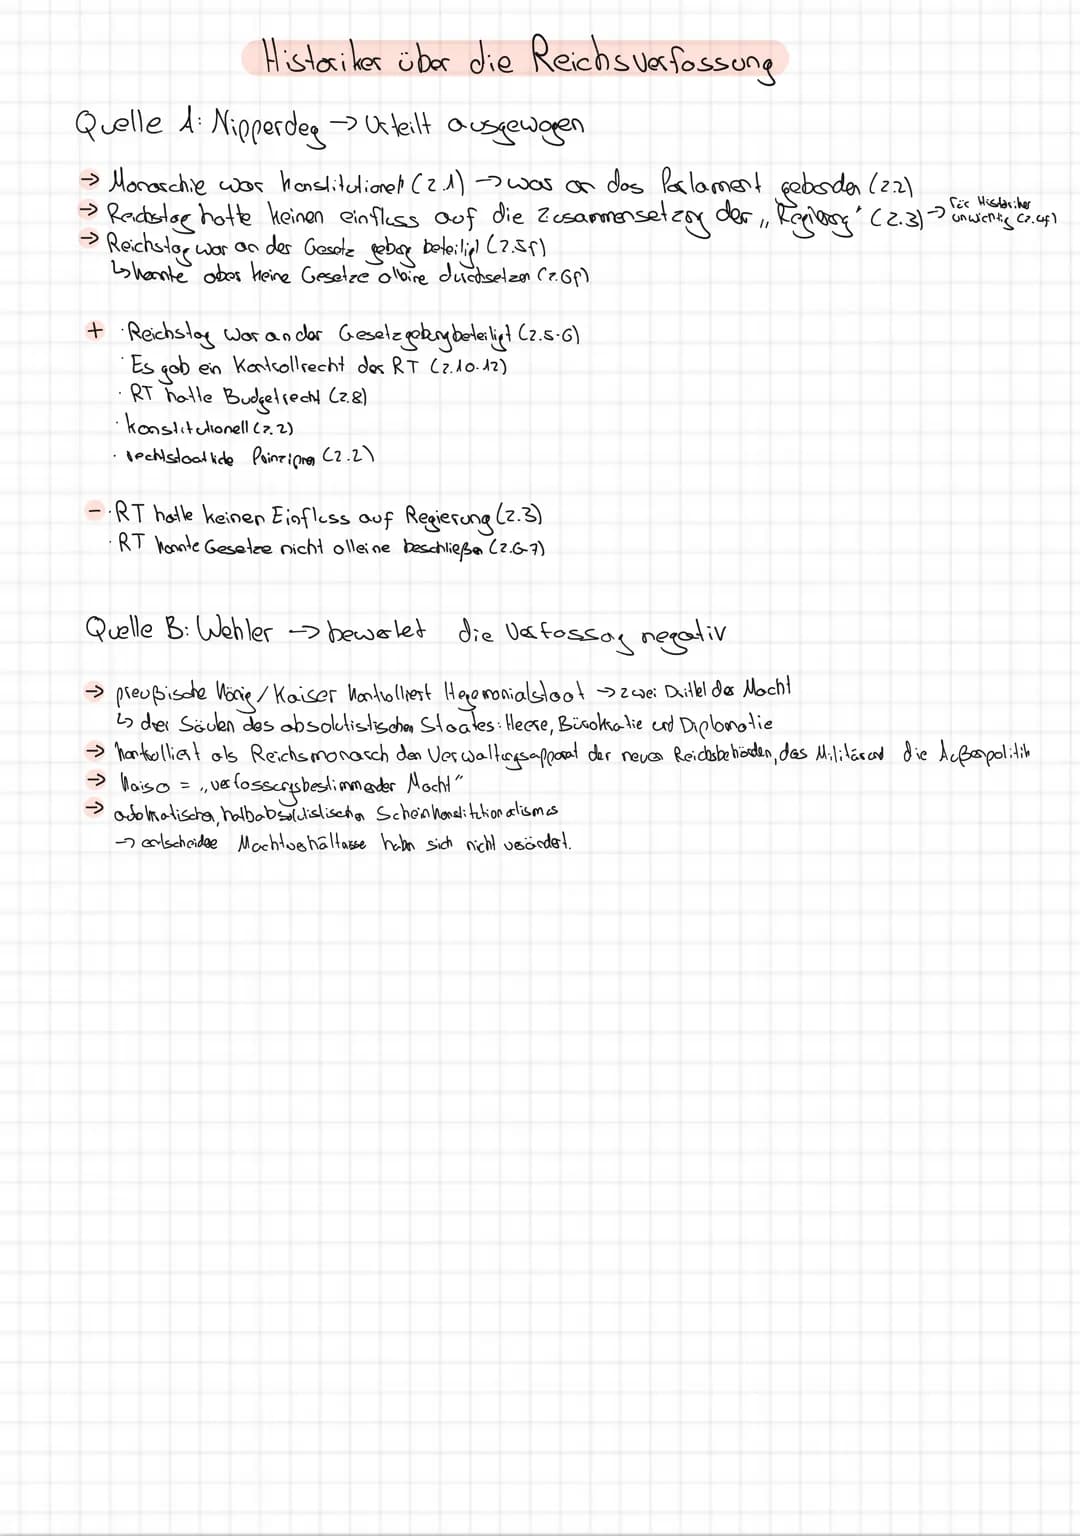 Historiker über die Reichsverfassung
Quelle A: Nipperdey → Urteilt ausgewogen
→ Monarchie war konstitutionell (Z.1) → war an das Parlament gebunden (Z.2)
→ Reichstag hatte keinen einfluss auf die Zusammensetzung der „Regierung" (Z.3) → für Historiker unwichtig (Z.4f)
→ Reichstag war an der Gesetz gebung beteiligt (Z.5f)
↳ konnte aber keine Gesetze alleine durchsetzen (Z.6f)
+ · Reichstag war an der Gesetzgebung beteiligt (Z.5-6)
· Es gab ein Kontrollrecht des RT (Z.10-12)
· RT hatte Budgetrecht (Z.8)
· konstitutionell (Z.2)
· rechtsstaatliche Prinzipien (Z.2)
- · RT hatte keinen Einfluss auf Regierung (Z.3)
· RT konnte Gesetze nicht alleine beschließen (Z.6-7)
Quelle B: Wehler → bewertet die Verfassung negativ
→ preußische König/Kaiser kontrolliert Hegemonialstaat → zwei Drittel der Macht
↳ drei Säulen des absolutistischen Staates: Heere, Bürokratie und Diplomatie
→ kontrolliert als Reichsmonarch den Verwaltungsapparat der neuen Reichsbehörden, das Militär und die Außenpolitik
→ Kaiser = „verfassungsbestimmender Macht"
→ autokratischer, halbabsolutistischen Scheinkonstitutionalismus
→ entscheidee Machtverhältnisse haben sich nicht verändert.